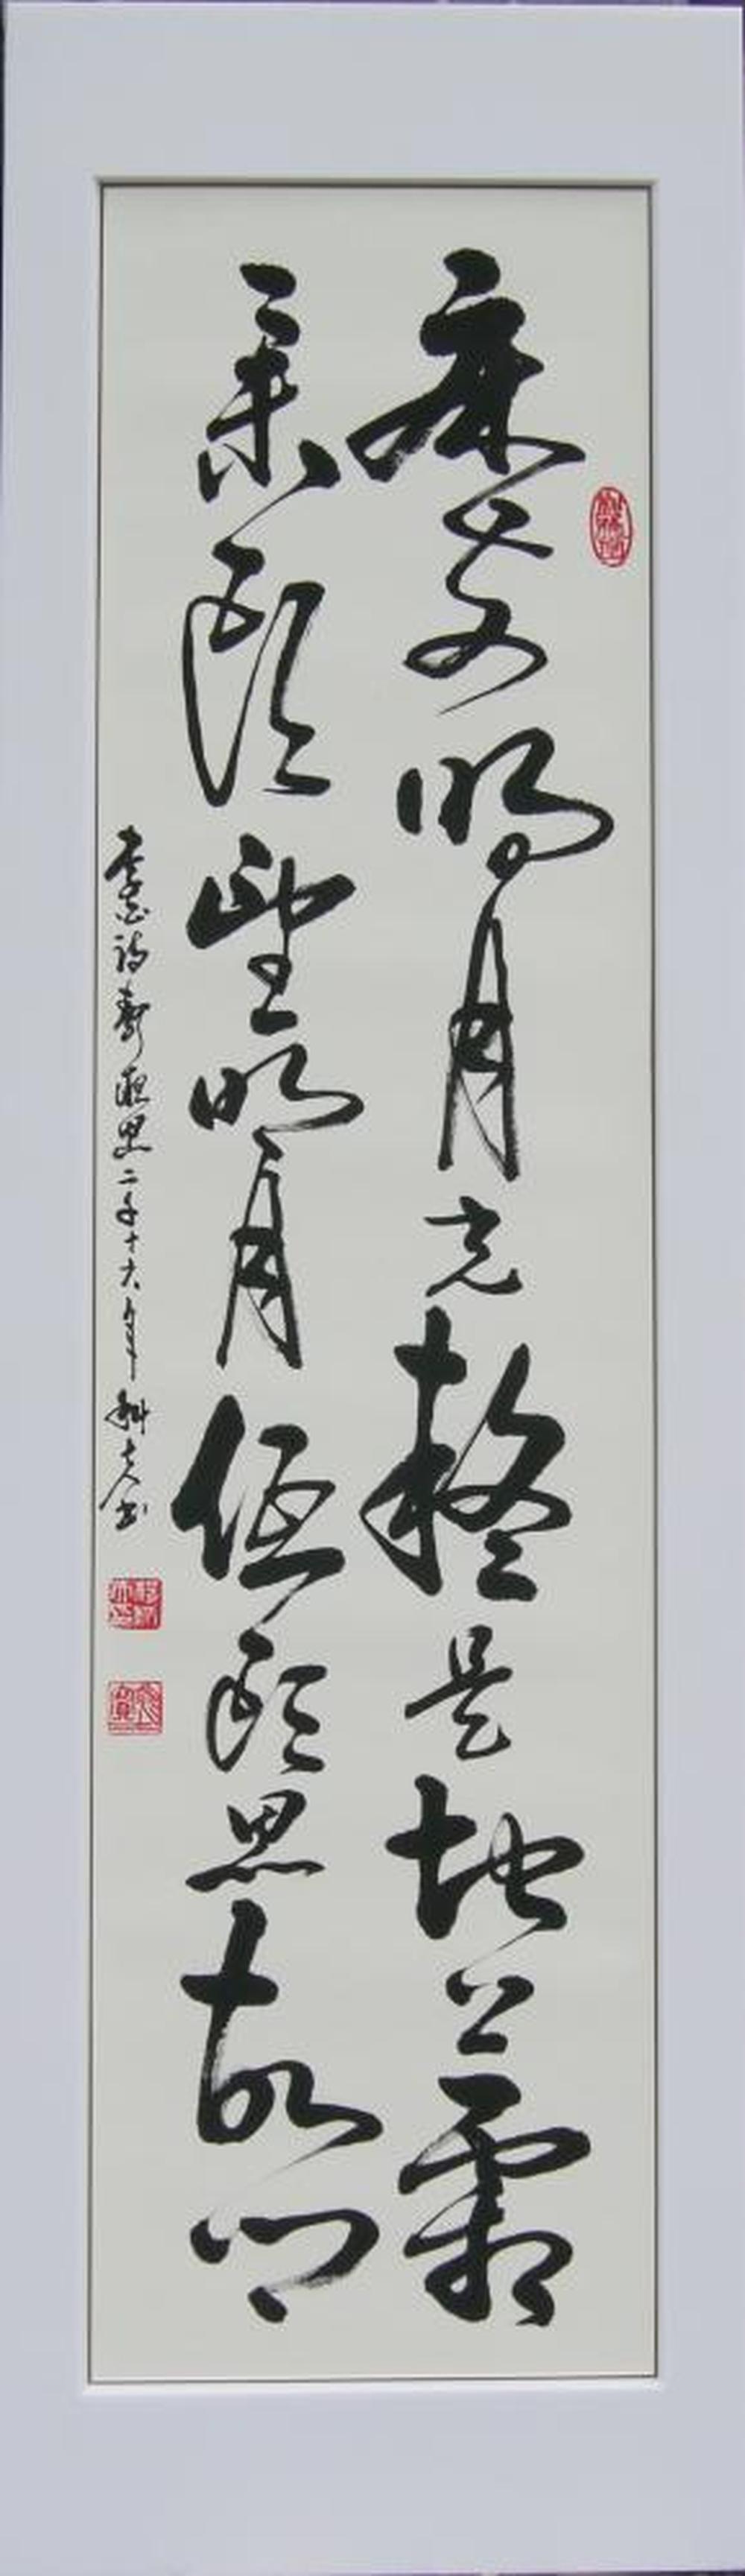 床前明月光疑是地上霜
舉頭望明月低頭思故鄉
李白詩靜夜思二千十六年